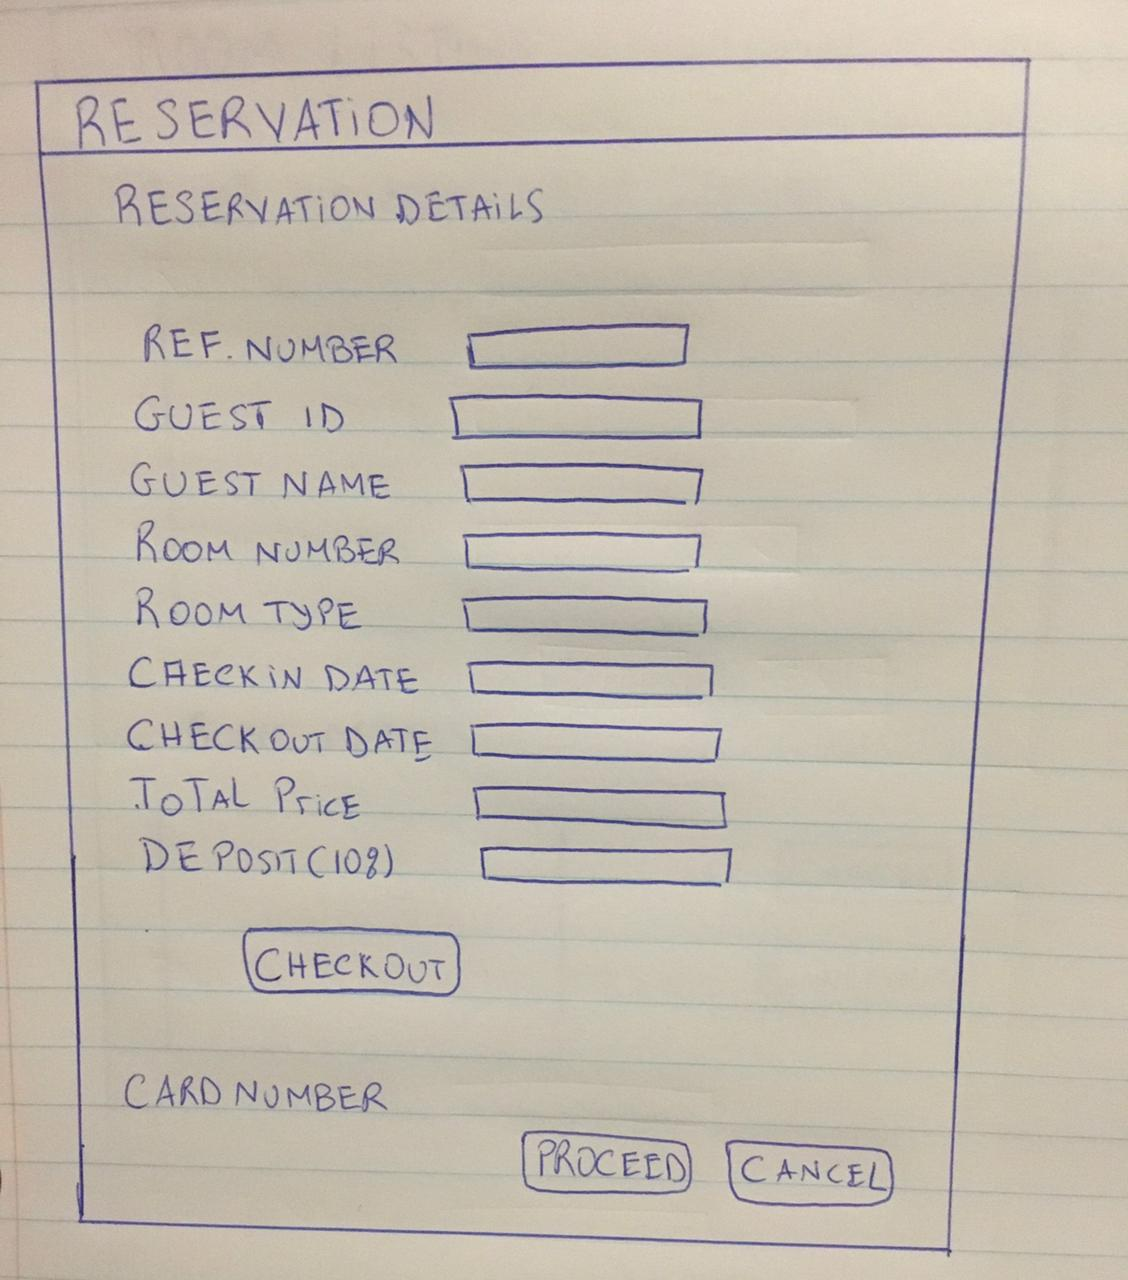 RESERVATION
RESERVATION DETAILS
REF. NUMBER
GUEST ID
GUEST NAME
ROOM NUMBER
ROOM TYPE
CHECKIN DATE
CHECKOUT DATE
TOTAL PRICE
DEPOSIT (10%)
CHECKOUT
CARD NUMBER
PROCEED CANCEL